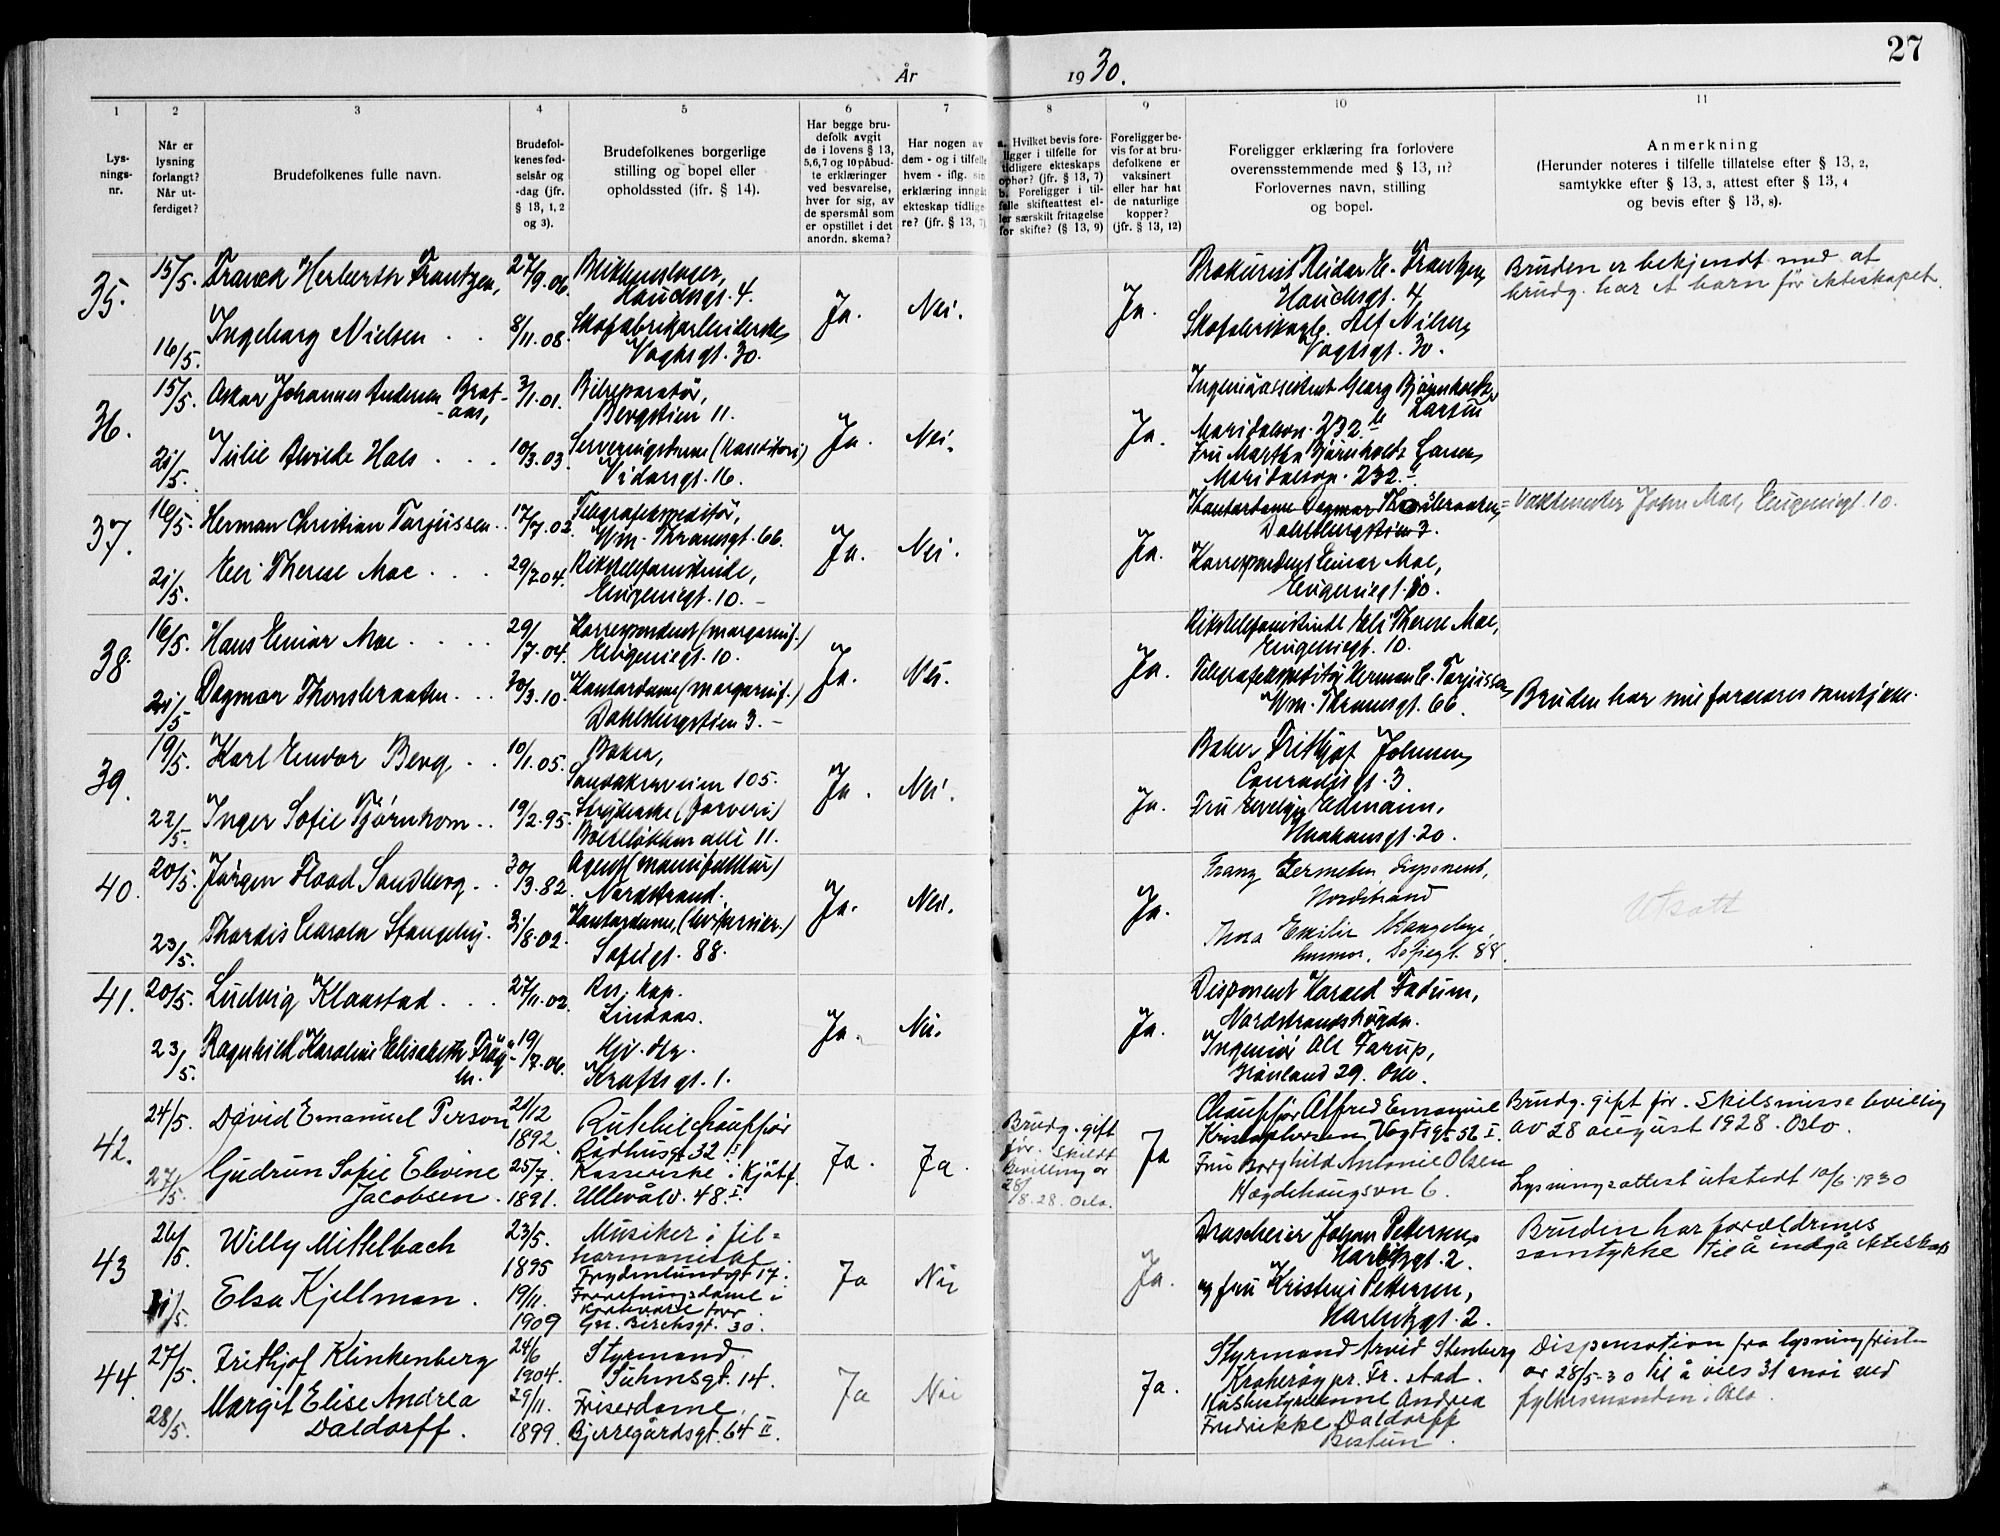 27
År 1930.
1 2 3 4 5 6 7 8 9 10 11
Lys-
nings-
nr.
Når er
lysning
forlangt?
Når ut-
ferdiget?
Brudefolkenes fulle navn.
Brudefol-
kenes fød-
selsår og
-dag (jfr.
§ 13, 1, 2
og 3).
Brudefolkenes borgerlige
stilling og bopel eller
opholdssted (jfr. § 14).
Har begge bru-
defolk avgit
de i lovens § 13,
5,6,7 og 10 påbud-
te erklæringer
ved besvarelse,
hver for sig, av
de spørsmål som
er opstillet i det
anordn. skema?
Har nogen av
dem - og i tilfelle
hvem - iflg. sin
erklæring inngått
ekteskap tidlige-
re? (jfr. § 13, 7)
a. Hvilket bevis fore-
ligger i tilfelle for
tidligere ekteskaps
ophør? (jfr. § 13, 7)
b. Foreligger i til-
felle skifteattest el-
ler særskilt fritagelse
for skifte? (§ 13, 9)
Foreligger be-
vis for at bru-
defolkene er
vaksinert
eller har hat
de naturlige
kopper?
(jfr. § 13, 12)
Foreligger erklæring fra forlovere
overensstemmende med § 13, 11?
Forlovernes navn, stilling
og bopel.
Anmerkning
(Herunder noteres i tilfelle tillatelse efter § 13, 2,
samtykke efter § 13, 3, attest efter § 13, 4
og bevis efter § 13, 8).
35. 15/5. Franck Herberth Frantzen, 27/9.06. Blikkenslager,
Hauchsgt. 4.
Ingeborg Nielsen 8/11.08. Skofabrikarbeiderske,
16/5. Vogtsgt. 30.
Ja. Nei. Ja.
Prokurist Reidar E. Frantzen,
Hauchsgt. 4
Skofabrikarb. Alf Nilsen,
Vogtsgt. 30.
Bruden er bekjendt med at
brudg. har et barn før ekteskapet.
36. 15/5. Oskar Johannes Andersen Brat-
aas, 3/1.01. Bilreparatør,
Bergstien 11.
21/5. Julie Alvilde Hals 10/3.03. Serveringsdame (Konditori)
Vidarsgt. 16.
Ja. Nei. Ja.
Ingeniørassistent Georg Bjørnholdt
Larsen
Maridalsvn. 232.
Fru Martha Bjørnholdt Larsen,
Maridalsvn. 232
37. 16/5. Herman Christian Torjussen 17/7.02. Telegrafekspeditør,
Wm. Thranesgt. 66.
21/5. Elli Therese Moe 29/7.04. Rikstelefonistinde,
Eugeniegt. 10.
Ja. Nei. Ja.
Kontordame Dagmar
Dahlsbergstien 3.
Korrespondent Einar Moe,
Eugeniegt. 10.
Vaktmester John Moe, Eugeniegt. 10.
38. 16/5. Hans Einar Moe 29/7.04. Korrespondent (margarinf.)
Eugeniegt. 10.
21/5 Dagmar 30/3.10. Kontordame (margarinf.)
Dahlsbergstien 3.
Ja. Nei. Ja.
Rikstelefonistinde Elli Therese Moe,
Eugeniegt. 10.
Telegrafekspeditør Herman C. Torjussen,
Wm. Thranesgt. 66.
Bruden har sine foreldres samtykke.
39. 19/5. Karl Einar Berg 10/1.05. Baker,
Sandakerveien 105.
22/5. Inger Sofie Tjørnhom 19/2.95. Strykerske (farveri)
allé 11.
Ja. Nei. Ja.
Baker Frithjof Johnsen,
Conradisgt. 3
Fru Edmann,
Haakonsgt. 20.
40. 20/5. Jørgen Flood Sandberg 30/3.82. Agent (manufaktur)
Nordstrand.
23/5. Thordis Carola Stangeby. 31/8.02. Kontordame,
Sofiegt. 88.
Ja. Nei. Ja.
Franz disponent,
Nordstrand
Thora Emilie Stangebye,
husmor, Sofiegt. 88.
Utsatt
41. 20/5. Ludvig Klaastad 27/11.02. Res. kap.
Lindaas.
23/5. Ragnhild Karoline Elisabeth 19/7.06. Hjv. dtr.
Kraftsgt. 1.
Ja. Nei. Ja.
Disponent Harald Fadum,
Nordstrandshøgda.
Ingeniør Ole Farup,
Grønland 29. Oslo.
42. 24/5. David Emanuel Person 21/12 1892. Rutebilchauffør
Rådhusgt 32
27/5. Gudrun Sofie Elevine
Jacobsen. 25/7. 1891. Kasserske i Kjøtf.
Ullevålv. 48 I
Ja. Ja.
Brudg. gift
før. Skildt
Bevilling av
28/8.28. Oslo.
Ja
Chauffør Alfred Emanuel
Kristophersen, Vogtsgt 52 I.
Fru Borghild Antonie Olsen
Hægdehaugsvn 6.
Brudg. gift før. Skilsmisse bevillig
av 28 august 1928. Oslo.
Lysningsattest utstedt 10/6.1930
43 26/5. Willy Mittelbach 23/5. 1895 Musiker i fil-
harmoniske.
Frydenlundsgt 17.
31/5. Elsa Kjellman. 19/11. 1909 Forretningsdame i
Gn. Birchsgt. 30.
Ja Nei Ja.
Drosjeeier Johan Pettersen,
Harbitzgt. 2.
og fru Kristine Pettersen,
Harbitzgt. 2.
Bruden har forældrenes
samtykke til å indgå ekteskap
44. 27/5. Frithjof Klinkenberg 24/6 1904. Styrmand
Suhmsgt. 14.
28/5. Margit Elise Andrea
Daldorff. 29/11. 1899. Friserdame.
Bjerregårdsgt. 64 II.
Ja Nei Ja.
Styrmand Arvid Stenberg
Krokerøy pr. Fr. stad.
Husbestyrerinne Andrea
Fredrikke Daldorff
Bestun.
Dispensation fra lysningfristen
av 28/5-30 til å vies 31 mai ved
fylkesmanden i Oslo.